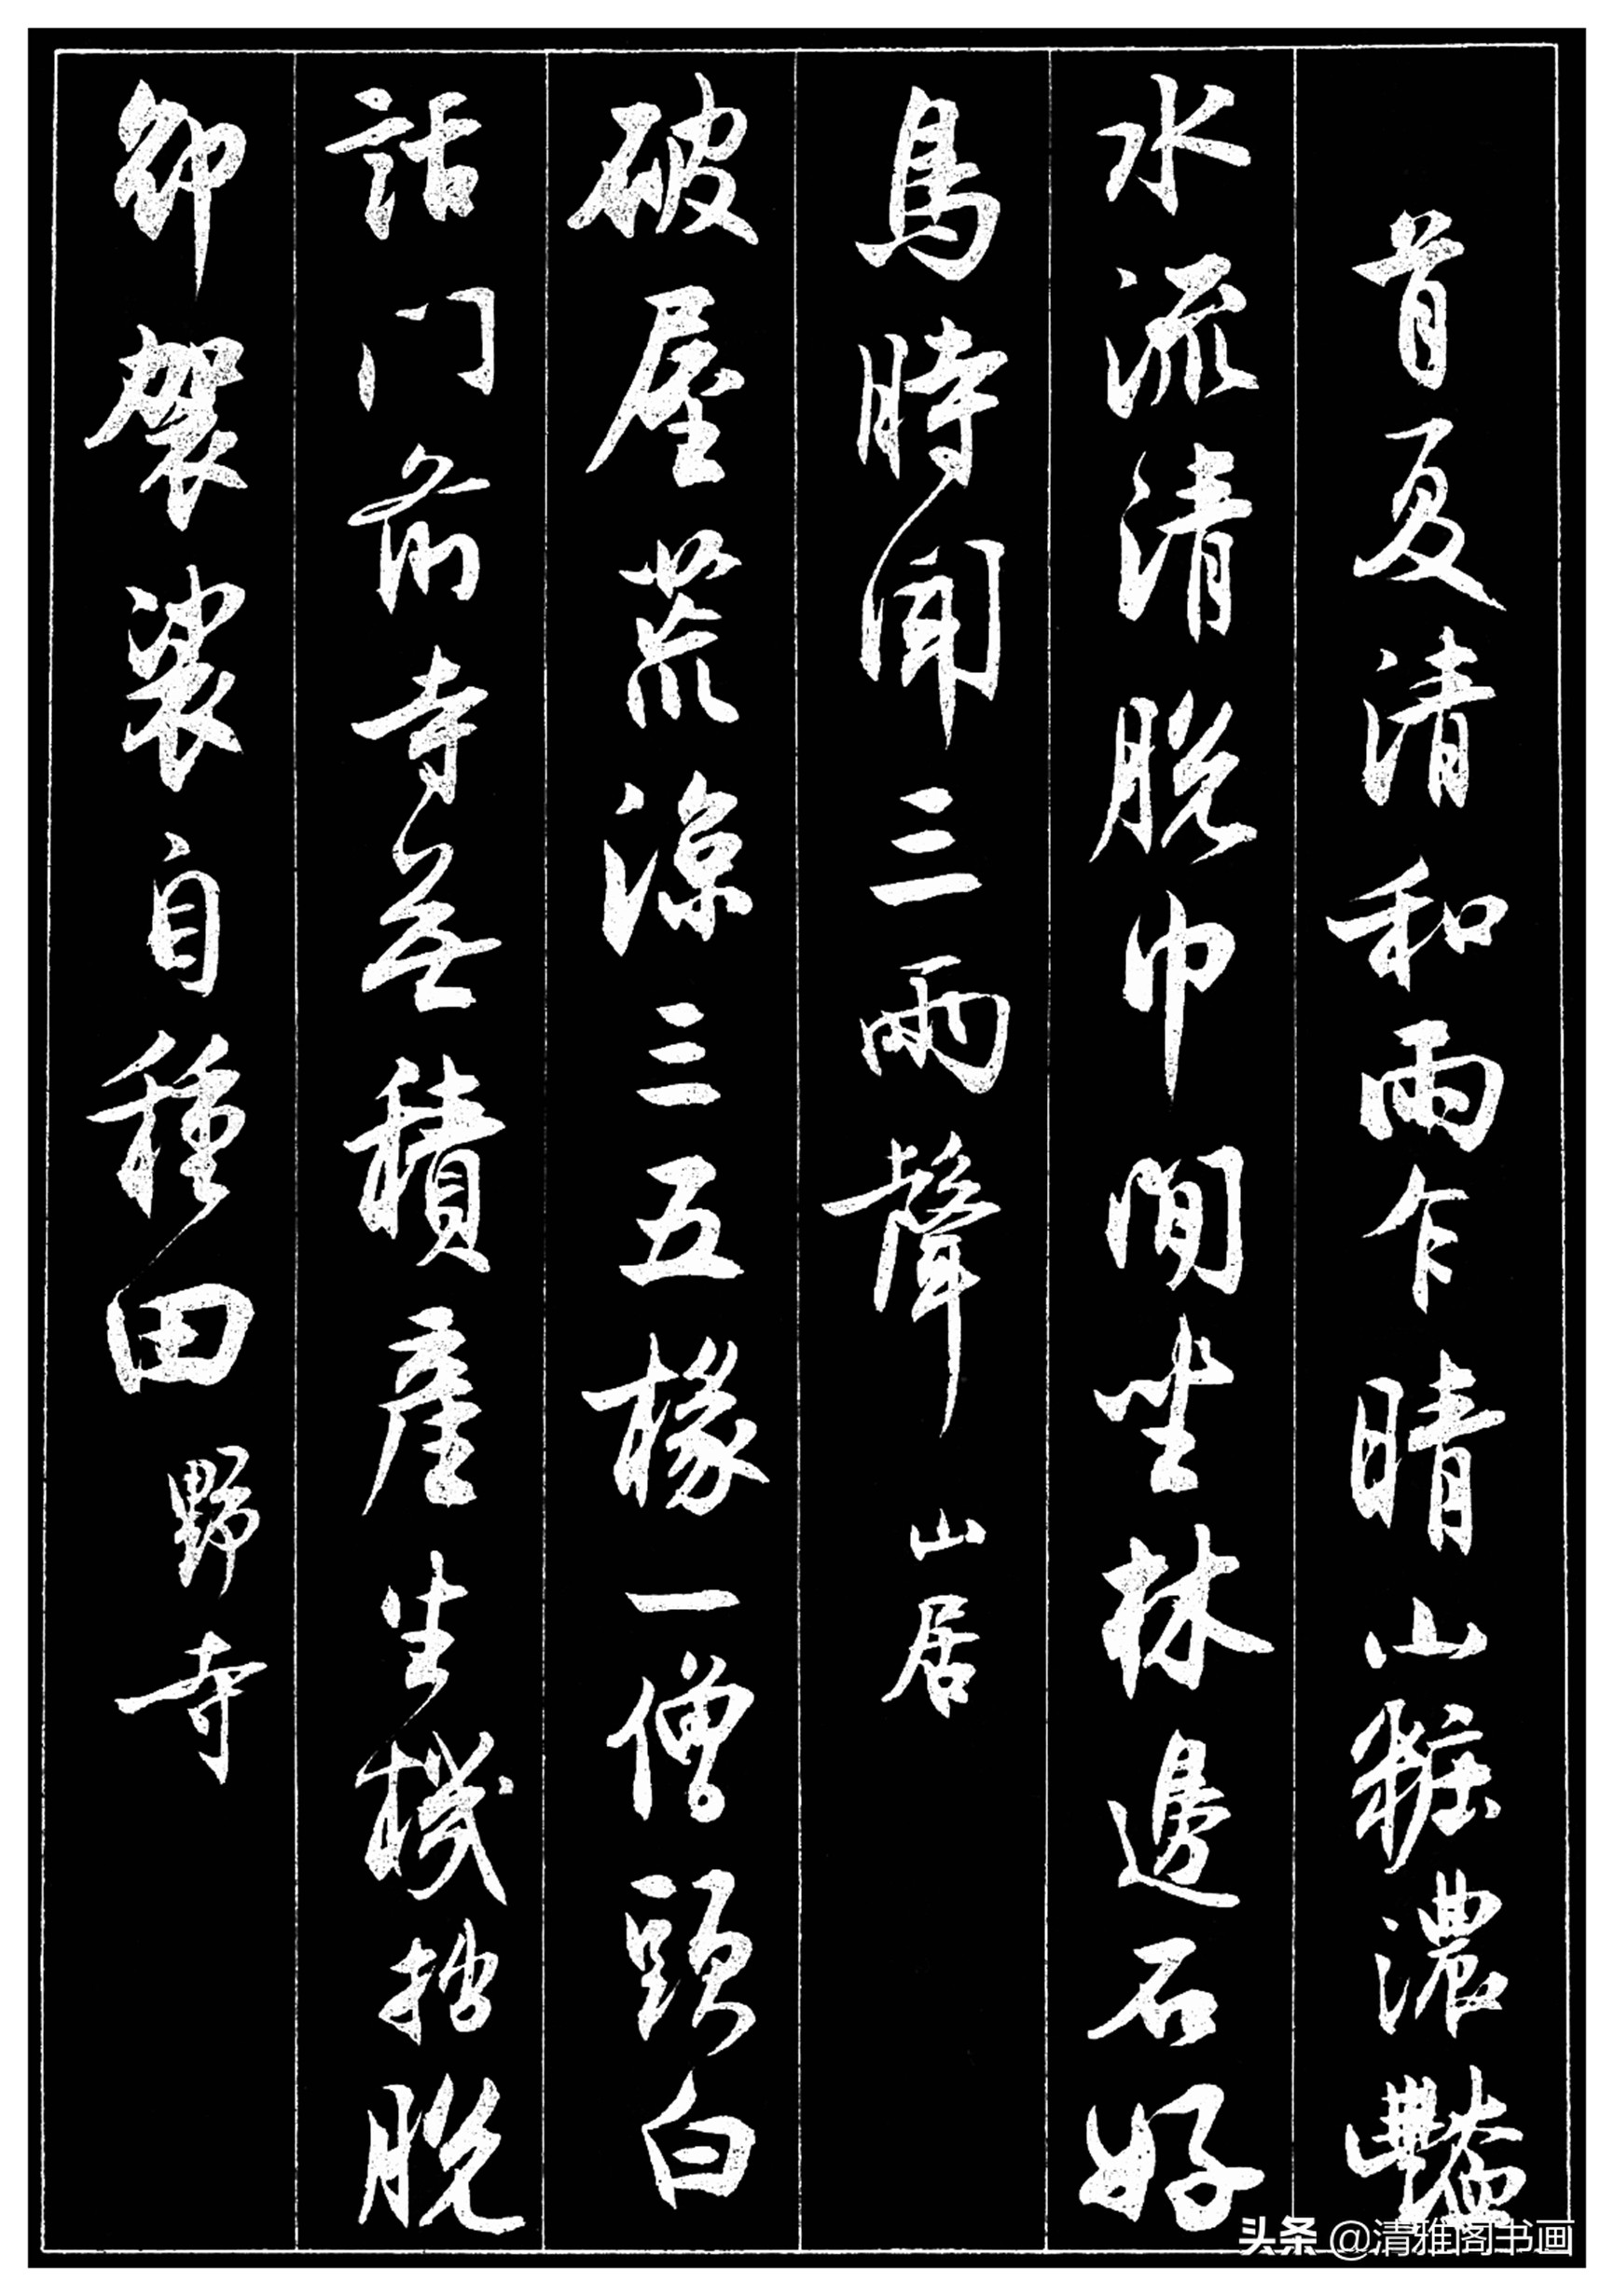 首夏清和雨乍晴山粧濃豔
水流清脱巾閒坐林邊石好
鳥時聞三兩聲山居
破屋荒涼三五椽一僧頭白
話門前寺無積產生機拙脱
卻袈裟自種田野寺
头条 @清雅阁书画